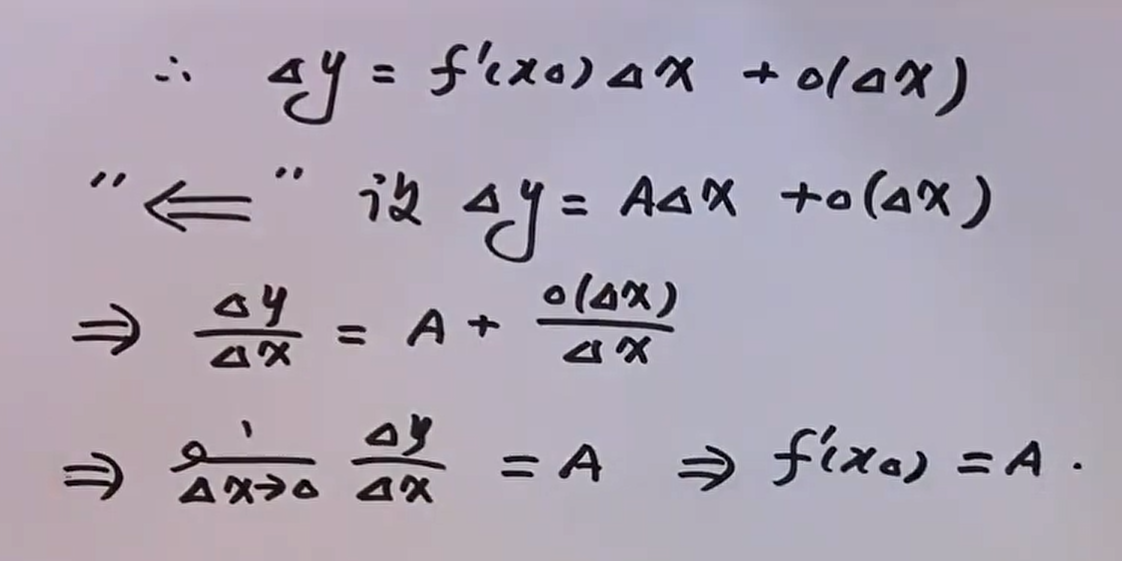 ∴ Δy = f'(x₀)Δx + o(Δx)
"⇐" 设 Δy = AΔx + o(Δx)
⇒ Δy/Δx = A + o(Δx)/Δx
⇒ lim_{Δx→0} Δy/Δx = A ⇒ f'(x₀) = A.